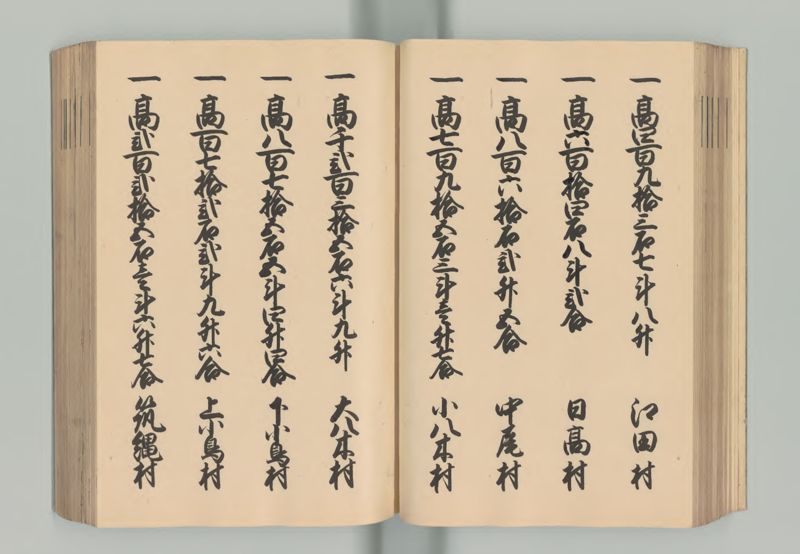 一 高四百九拾三石七斗八升 江田村
一 高六百拾四石八斗弐合 日高村
一 高八百六拾石弐升五合 中尾村
一 高七百九拾五石三斗壱升七合 小八木村
一 高千弐百三拾五石六斗九升 大八木村
一 高八百七拾五石五斗四升四合 下小鳥村
一 高百七拾弐石弐斗九升六合 上小鳥村
一 高弐百弐拾五石壱斗六升七合 筑縄村